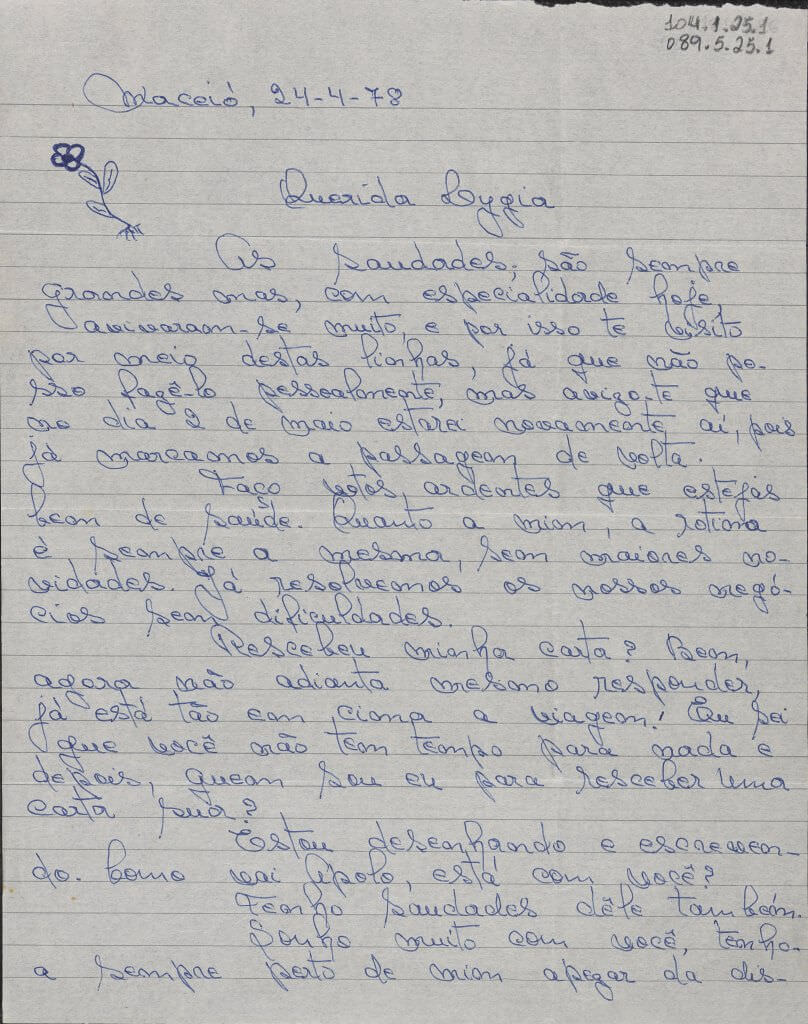 104.1.25.1
089.5.25.1
Maceió, 24-4-78
Querida Lygia
As saudades, são sempre
grandes mas, com especialidade hoje,
avivaram-se muito, e por isso te visito
por meio destas linhas, já que não po-
sso fazê-lo pessoalmente, mas avizo-te que
no dia 2 de maio estarei novamente aí, pois
já marcamos a passagem de volta.
Faço votos, ardentes que estejas
bem de saúde. Quanto a mim, a rotina
é sempre a mesma, sem maiores no-
vidades. Já resolvemos os nossos negó-
cios sem dificuldades.
Rescebeu minha carta? Bem,
agora não adianta mesmo responder,
já está tão em cima a viagem! Eu sei
que você não tem tempo para nada e
depois, quem sou eu para resceber uma
carta sua?
Estou desenhando e escreven-
do. Como vai Apolo, está com você?
Tenho saudades dêle também.
Sonho muito com você, tenho-
a sempre perto de mim apezar da dis-